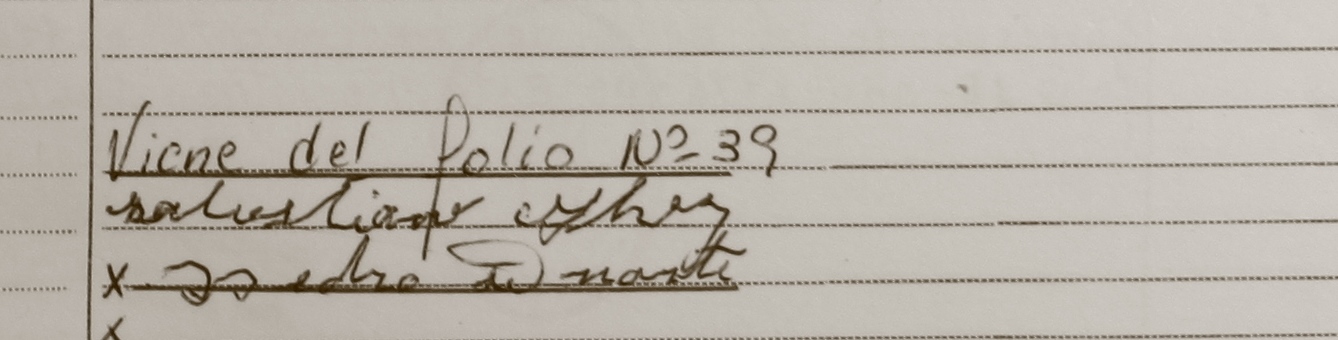 Viene del folio Nº 39
salustiano
x Pedro Duarte
x